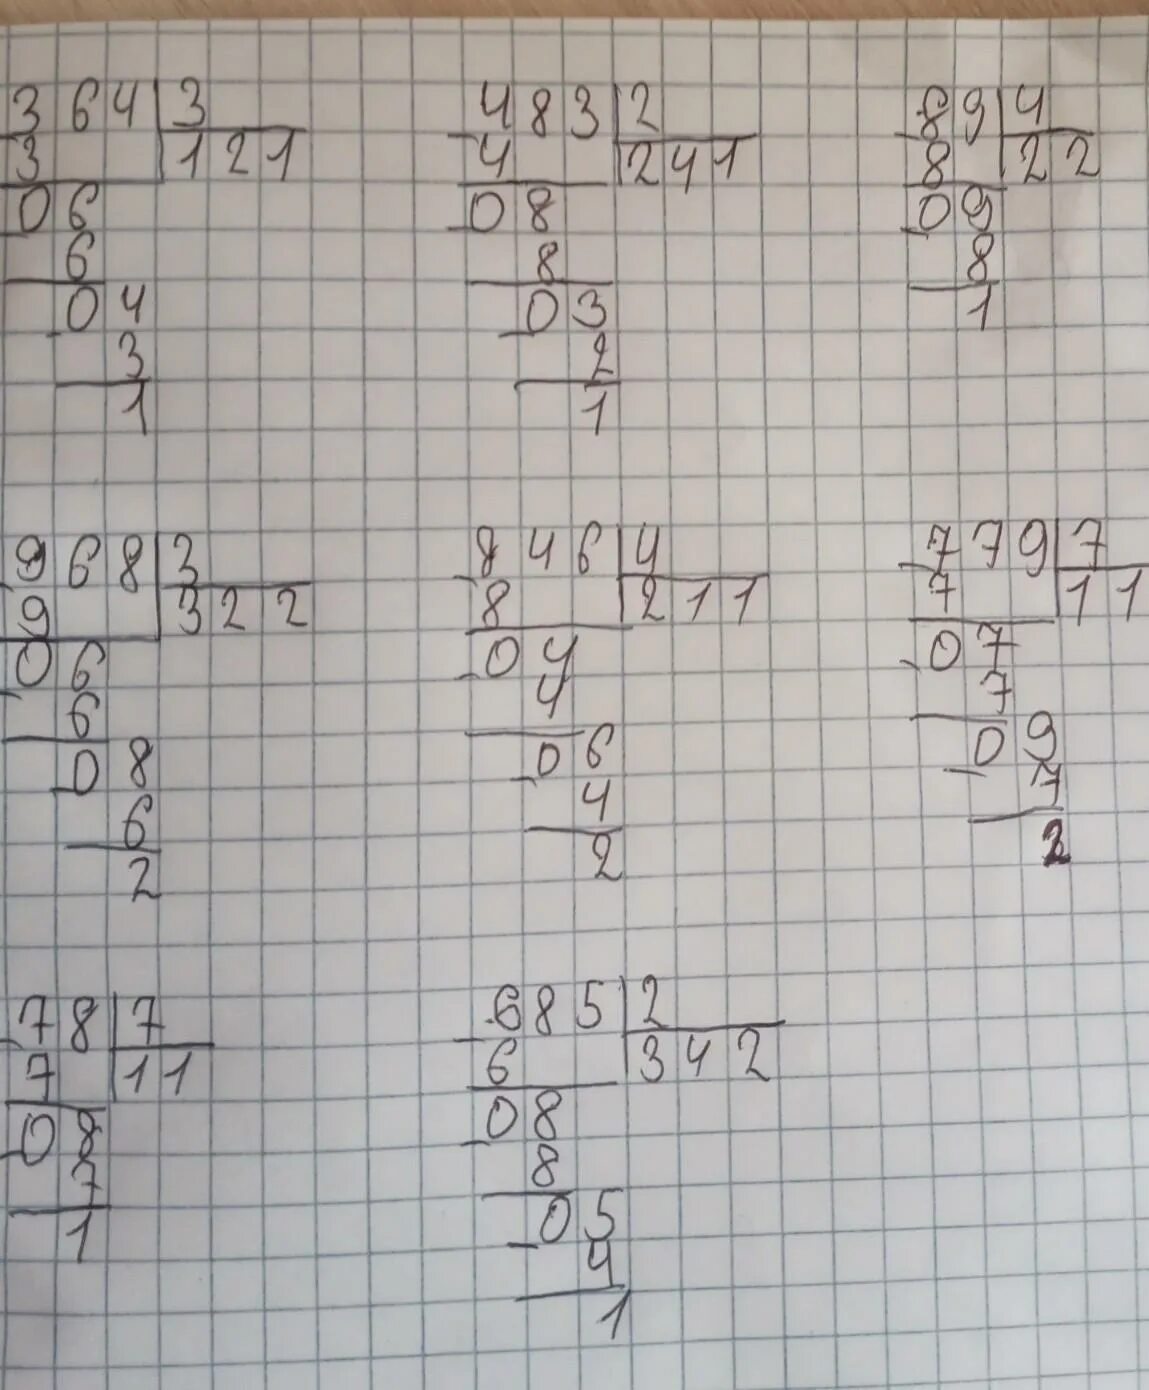 364 3
3 121
06
6
04
3
1
483 2
4 241
08
8
03
2
1
89 4
8 22
09
8
1
968 3
9 322
06
6
08
6
2
846 4
8 211
04
4
06
4
2
779 7
7 11
07
7
09
7
2
78 7
7 11
08
7
1
685 2
6 342
08
8
05
4
1